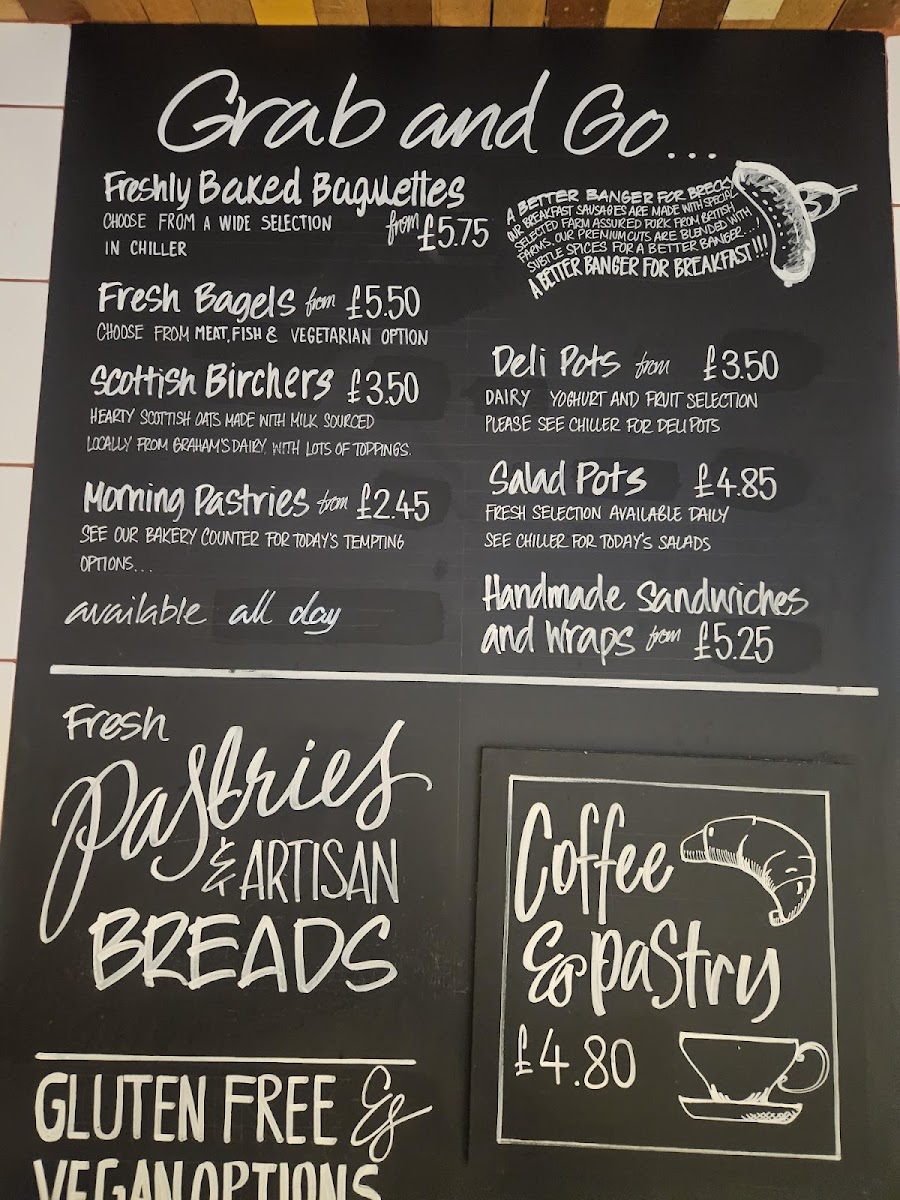 Grab and Go...
Freshly Baked Baguettes
CHOOSE FROM A WIDE SELECTION
IN CHILLER
from £5.75
A BETTER BANGER FOR BRECKY
OUR BREAKFAST SAUSAGES ARE MADE WITH SPECIAL
SELECTED FARM ASSURED PORK FROM BRITISH
FARMS. OUR PREMIUM CUTS ARE BLENDED WITH
SUBTLE SPICES FOR A BETTER BANGER...
A BETTER BANGER FOR BREAKFAST!!!
Fresh Bagels from £5.50
CHOOSE FROM MEAT, FISH & VEGETARIAN OPTION
Scottish Birchers £3.50
HEARTY SCOTTISH OATS MADE WITH MILK SOURCED
LOCALLY FROM GRAHAM'S DAIRY, WITH LOTS OF TOPPINGS.
Morning Pastries from £2.45
SEE OUR BAKERY COUNTER FOR TODAY'S TEMPTING
OPTIONS...
available all day
Deli Pots from £3.50
DAIRY YOGHURT AND FRUIT SELECTION
PLEASE SEE CHILLER FOR DELI POTS
Salad Pots £4.85
FRESH SELECTION AVAILABLE DAILY
SEE CHILLER FOR TODAY'S SALADS
Handmade Sandwiches
and Wraps from £5.25
Fresh
Pastries
& ARTISAN
BREADS
Coffee
& Pastry
£4.80
GLUTEN FREE &
VEGAN OPTIONS